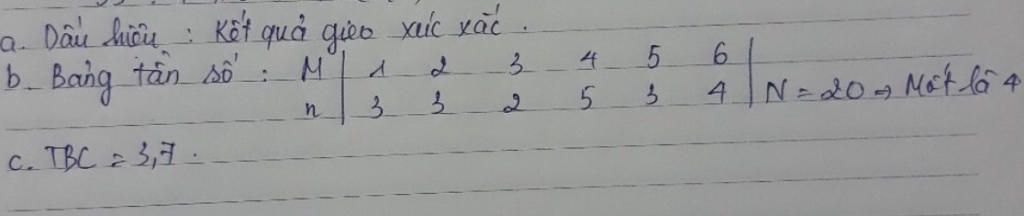 a. Dấu hiệu : Kết quả gieo xúc xắc.
b. Bảng tần số : M | 1 2 3 4 5 6 | N = 20 ⇒ Mốt là 4
n | 3 3 2 5 3 4 |
c. TBC = 3,7.